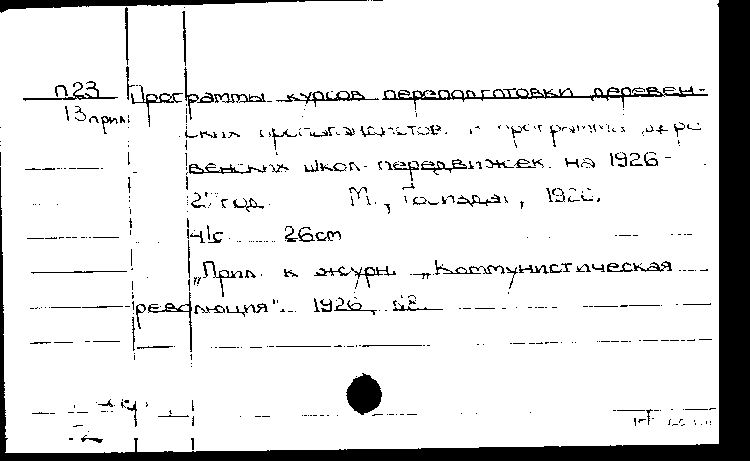 П23 Программы курсов переподготовки деревен-
13прил ских пропагандистов и программы дере
венских школ-передвижек на 1926-
27 год М., Госиздат, 1926.
41с 26см
„Прил. к журн. „Коммунистическая
революция". 1926, №8.